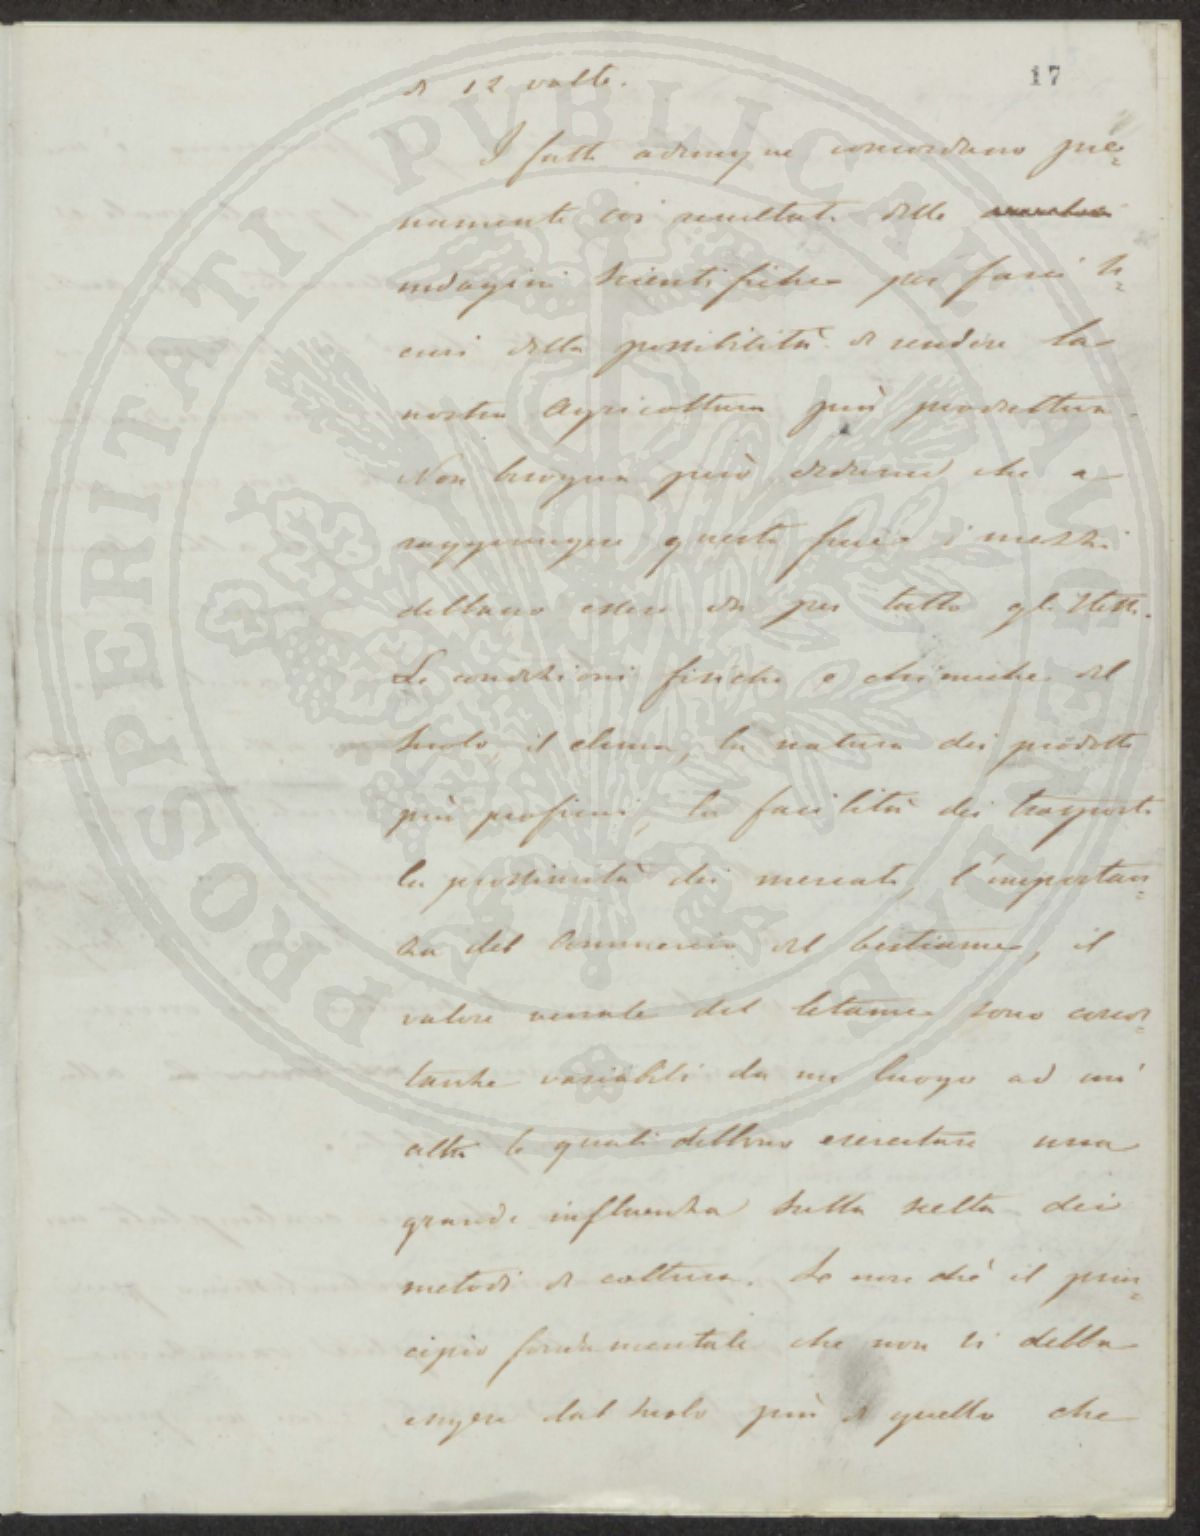 17
di 12 volte.
I fatti adunque concordano pie=
namente coi resultati delle
indagini scientifiche per farci si=
curi della possibilità di rendere la
nostra Agricoltura più produttiva.
Non bisogna però dedurne che a
raggiungere questo fine i mezzi
debbano essere da per tutto gli stessi.
Le condizioni fisiche e chimiche del
suolo, il clima, la natura dei prodotti
più proficui, la facilità dei trasporti
la prossimità dei mercati, l'importan=
za del Commercio del bestiame, il
valore venale del letame sono circos=
tanze variabili da un luogo ad un'
altro le quali debbono esercitare una
grande influenza sulla scelta dei
metodi di coltura. Se non chè il prin=
cipio fondamentale che non si debba
esigere dal suolo più di quello che
PROSPERITATI PUBLICAE AUGENDAE